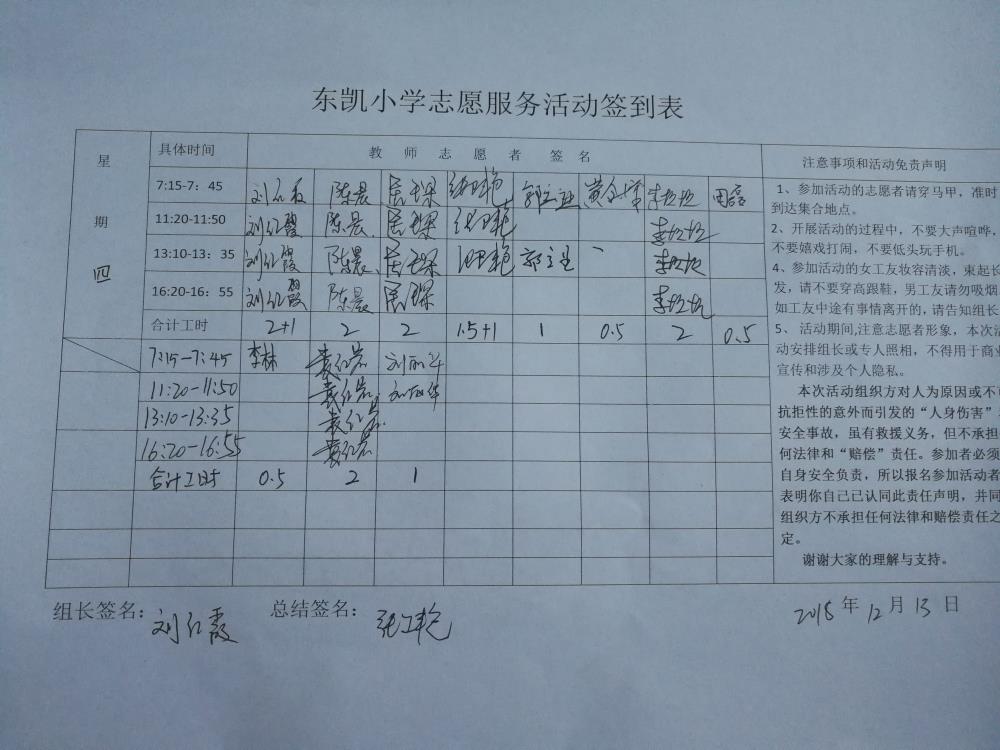 东凯小学志愿服务活动签到表
星期四
具体时间 教师志愿者签名
7:15-7：45 刘红霞 陈晨
11:20-11:50 刘红霞 陈晨
13:10-13：35 刘红霞 陈晨
16:20-16：55 刘红霞 陈晨
合计工时 2+1 2 2 1.5+1 1 0.5 2 0.5
7:15-7:45 李林 袁红岩 刘丽华
11:20-11:50 袁红岩 刘丽华
13:10-13:35 袁红岩
16:20-16:55 袁红岩
合计工时 0.5 2 1
注意事项和活动免责声明
1、参加活动的志愿者请穿马甲，准时
到达集合地点。
2、开展活动的过程中，不要大声喧哗，
不要嬉戏打闹，不要低头玩手机。
4、参加活动的女工友妆容清淡，束起长
发，请不要穿高跟鞋，男工友请勿吸烟
如工友中途有事情离开的，请告知组长
5、活动期间,注意志愿者形象，本次活
动安排组长或专人照相，不得用于商业
宣传和涉及个人隐私。
本次活动组织方对人为原因或不可
抗拒性的意外而引发的“人身伤害”
安全事故，虽有救援义务，但不承担
何法律和“赔偿”责任。参加者必须
自身安全负责，所以报名参加活动者
表明你自己已认同此责任声明，并同
组织方不承担任何法律和赔偿责任之
定。
谢谢大家的理解与支持。
组长签名：刘红霞 总结签名：张艳 2018年12月13日